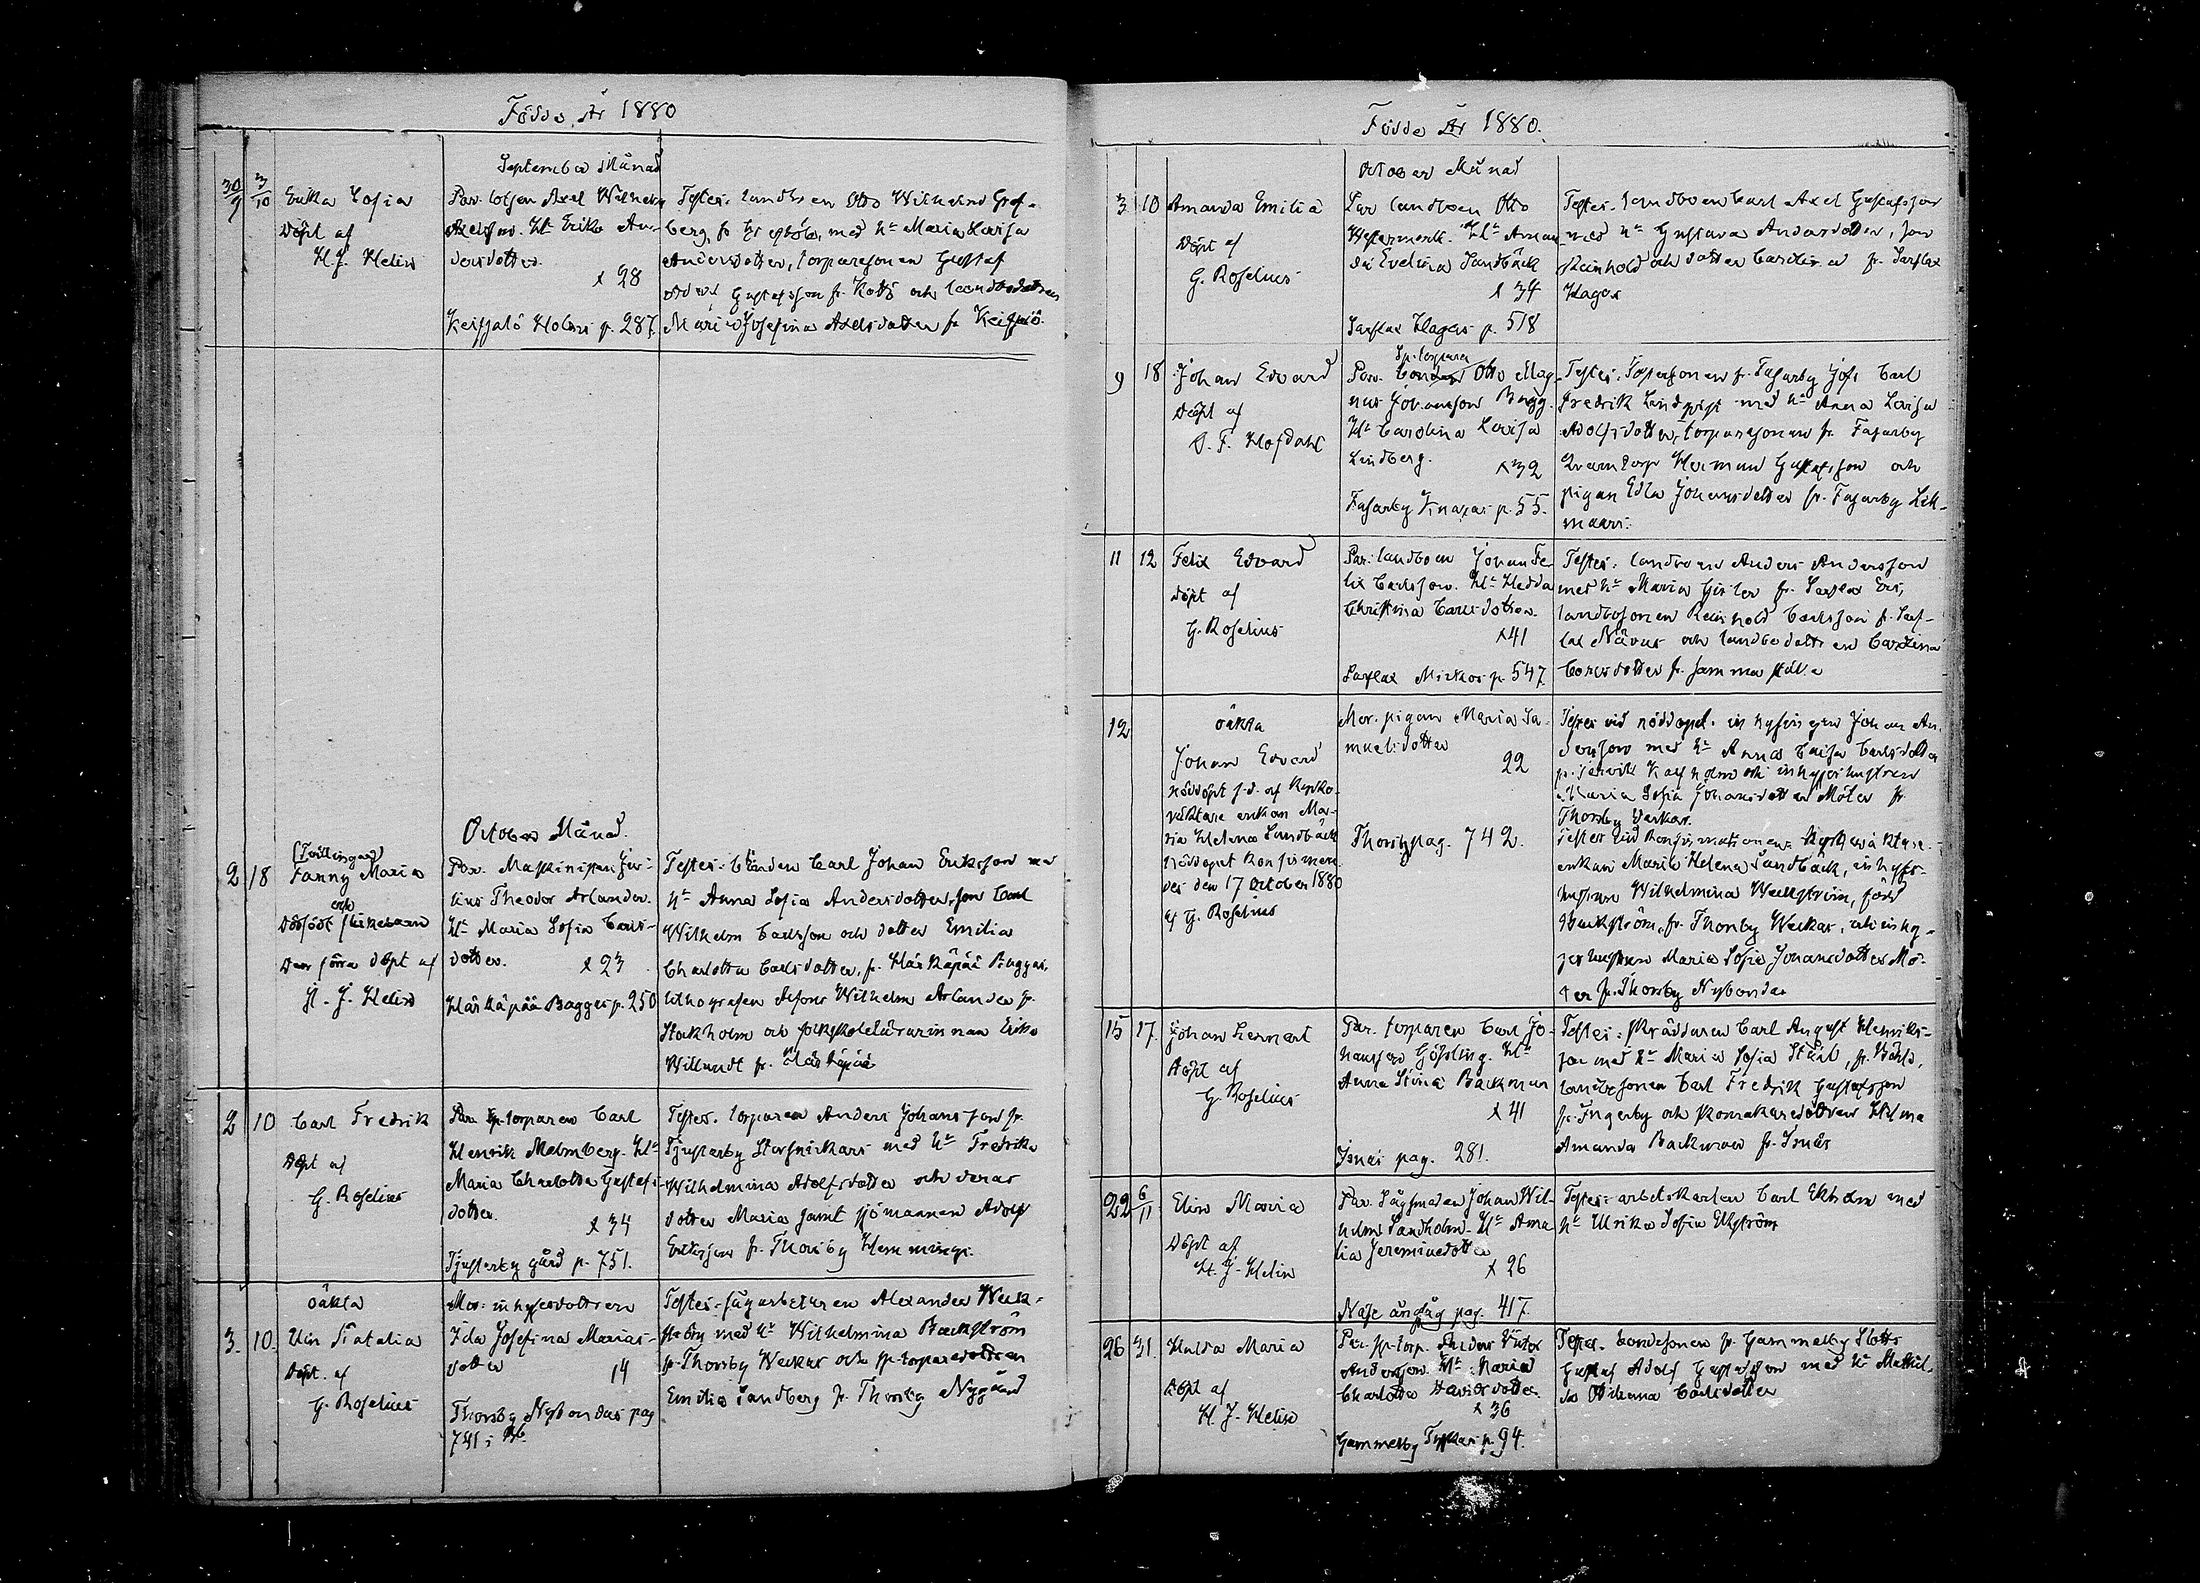 Födde År 1880
September Månad
30/9 3/10 Erika Sofia
Döpt af
H.J. Helin
Par. lotsen Axel Wilhelm
Axelsson. H:u Erika An-
dersdotter.
x 28
Keipsalö Holms p. 287.
Testes: landboen Otto Wilhelm Gref-
berg, fr. med h:u Maria Lovisa
Andersdotter, torparesonen Gustaf
Gustafsson fr. och landbodottren
Maria Josefina Axelsdotter fr. Keipsalö.
October Månad.
2 18 (Tvillingar)
Fanny Maria
och
Dödfödt flickebarn
Den förra döpt af
H. J. Helin
Par. Maskinisten Ju-
lius Theodor Arlander.
H:u Maria Sofia Carls-
dotter. x 23
Härkäpää Bagges p. 250
Testes: bonden Carl Johan Eriksson med
h:u Anna Sofia Andersdotter, son Carl
Wilhelm Carlsson och dotter Emilia
Charlotta Carlsdotter, fr. Härkäpää Bagges,
lithografen Alfons Wilhelm Arlander fr.
Stockholm och folkskolelärarinnan Erika
Willandt fr. Härkäpää
2 10 Carl Fredrik
Döpt af
G. Roselius
Par. sp. torparen Carl
Henrik Malmberg. H:u
Maria Charlotta Gustafs-
dotter. x 34
Tjusterby gård p. 751.
Testes: torparen Anders Johansson fr.
Tjusterby Storsnickars med h:u Fredrika
Wilhelmina Adolfsdotter och deras
dotter Maria samt sjömannen Adolf
Eriksson fr. Thorsby Hemmings.
oäkta
3. 10. Natalia
Döpt af
G. Roselius
Mor: inhysesdottren
Ida Josefina Marias-
dotter 14
Thorsby Nybondas pag
741;
Testes: sågarbetaren Alexander Weck-
ström med h:u Wilhelmina Backström
fr. Thorsby Weckas och sp. torparedottren
Emilia Sandberg fr. Thorsby Nygård
Födde År 1880.
October Månad
3 10 Amanda Emilia
Döpt af
G. Roselius
Par landboen Otto
Westermark. H:u Aman-
da Evelina Sandbäck
x 34
Sarflax Klagas p. 518
Testes: landboen Carl Axel Gustafsson
med h:u Gustava Andersdotter, son
Reinhold och dotter Carolina fr. Sarflax
Klagas
9 18 Johan Edvard
Döpt af
O. F. Hofdahl
Sp. torpare
Par. bonden Otto Mag-
nus Johansson Bagg.
H:u Carolina Lovisa
Lindberg. x 32
Fasarby p. 55.
Testes: fr. Fasarby Carl
Fredrik Lindqvist med h:u Anna Lovisa
Adolfsdotter, torparesonen fr. Fasarby
Qvarntorp Herman Gustafsson och
pigan Edla Johansdotter fr. Fasarby Lill-
maars.
11 12 Felix Edvard
döpt af
G. Roselius
Par: landboen Johan Fe-
lix Carlsson. H:u Hedda
Christina Carlsdotter.
x 41
Sarflax Mickos p. 547.
Testes: landboen Anders Andersson
med h:u Maria fr. Sarflax
landbosonen Reinhold Carlsson fr. Sarf-
lax och landbodottren Carolina
Carlsdotter fr. samma ställe
12 oäkta
Johan Edvard
nöddöpt s.d. af kyrko-
väktare enkan Ma-
ria Helena Sandbäck
nöddopet konfirmera-
des den 17 October 1880
af G. Roselius
Mor. pigan Maria Sa-
muelsdotter
22
Thorsby pag. 742.
Testes vid nöddopet: inhysingen Johan An-
dersson med h:u Anna Caisa Carlsdotter
fr. Kalfholm och inhyseshustrun
Maria Sofia Johansdotter Möller fr
Thorsby Weckas.
Testes vid konfirmationen: Kyrkoväktare-
enkan Maria Helena Sandbäck, inhyses-
hustrun Wilhelmina Weckström, född
Backström, fr. Thorsby Weckas, och inhy-
seshustrun Maria Sofia Johansdotter Mö-
ller fr. Thorsby Nybondas
15 17. Johan Lennart
Döpt af
G. Roselius
Par. torparen Carl Jo-
hansson Gössling. H:u
Anna Stina Backman
x 41
Isnäs pag. 281.
Testes: skräddaren Carl August Henriks-
son med h:u Maria Sofia Ståhl, fr.
landbosonen Carl Fredrik Gustafsson
fr. Ingerby och skomakaredottren Hilma
Amanda Backman fr. Isnäs
22 6/11 Elin Maria
Döpt af
H. J. Helin
Par. Sågsmeden Johan Wil-
helm Sandholm. H:u Ama-
lia Jeremiædotter
x 26
Näse ångsåg pag. 417.
Testes: arbetskarlen Carl Ekholm med
h:u Ulrika Sofia Ekström
26 31. Hulda Maria
Döpt af
H. J. Helin
Par. sp. torp. Victor
Andersson. H:u Maria
Charlotta Davidsdotter
x 36
Gammelby p. 94.
Testes. bondesonen fr. Gammelby Slotts
Gustaf Adolf Gustafsson med h:u Mathil-
da Carlsdotter